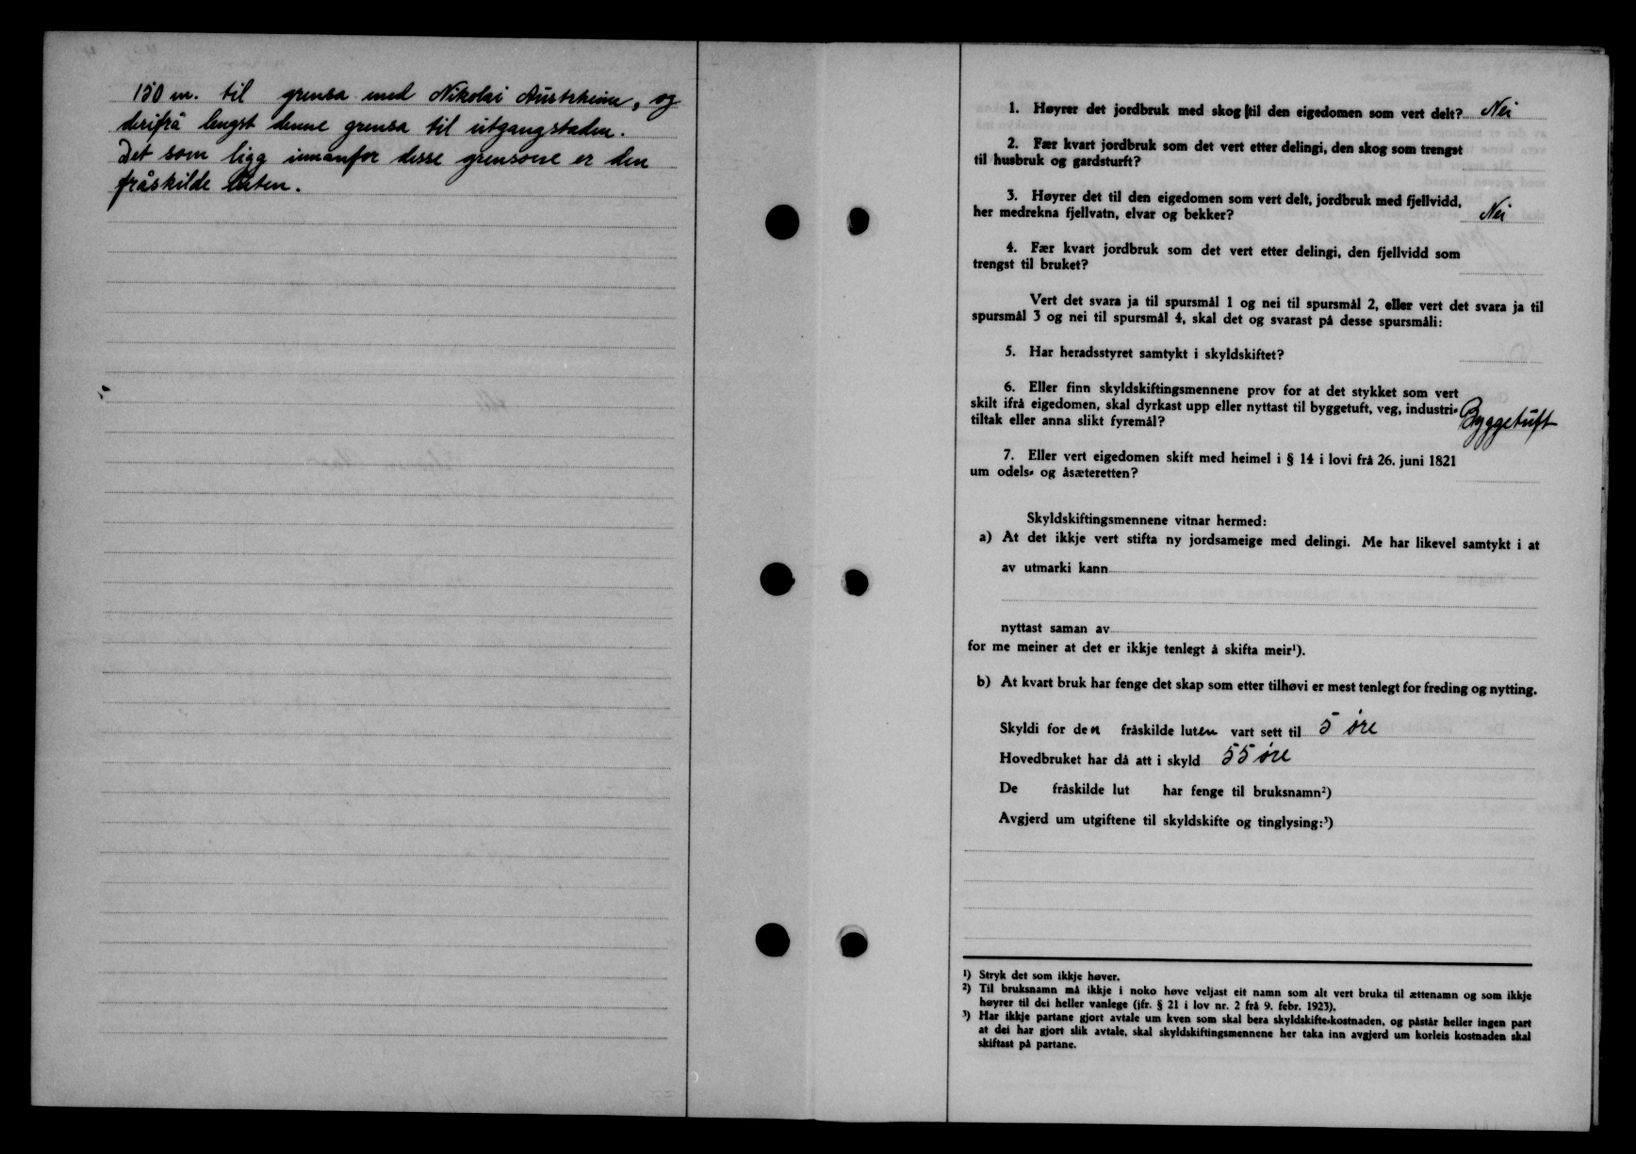 150 m. til grensa med Nikolai Austrheim, og
derifrå lengst denne grensa til utgangstaden.
Det som ligg innanfor desse grensone er den
fråskilde luten.
1. Høyrer det jordbruk med skog til den eigedomen som vert delt? Nei
2. Fær kvart jordbruk som det vert etter delingi, den skog som trengst
til husbruk og gardsturft?
3. Høyrer det til den eigedomen som vert delt, jordbruk med fjellvidd,
her medrekna fjellvatn, elvar og bekker? Nei
4. Fær kvart jordbruk som det vert etter delingi, den fjellvidd som
trengst til bruket?
Vert det svara ja til spursmål 1 og nei til spursmål 2, eller vert det svara ja til
spursmål 3 og nei til spursmål 4, skal det og svarast på desse spursmåli:
5. Har heradsstyret samtykt i skyldskiftet?
6. Eller finn skyldskiftingsmennene prov for at det stykket som vert
skilt ifrå eigedomen, skal dyrkast upp eller nyttast til byggetuft, veg, industri-
tiltak eller anna slikt fyremål? Byggetuft
7. Eller vert eigedomen skift med heimel i § 14 i lovi frå 26. juni 1821
um odels- og åsæteretten?
Skyldskiftingsmennene vitnar hermed:
a) At det ikkje vert stifta ny jordsameige med delingi. Me har likevel samtykt i at
av utmarki kann
nyttast saman av
for me meiner at det er ikkje tenlegt å skifta meir¹).
b) At kvart bruk har fenge det skap som etter tilhøvi er mest tenlegt for freding og nytting.
Skyldi for den fråskilde luten vart sett til 5 øre
Hovedbruket har då att i skyld 55 øre
De fråskilde lut har fenge til bruksnamn²)
Avgjerd um utgiftene til skyldskifte og tinglysing:³)
¹) Stryk det som ikkje høver.
²) Til bruksnamn må ikkje i noko høve veljast eit namn som alt vert bruka til ættenamn og som ikkje
høyrer til dei heller vanlege (jfr. § 21 i lov nr. 2 frå 9. febr. 1923).
³) Har ikkje partane gjort avtale um kven som skal bera skyldskifte-kostnaden, og påstår heller ingen part
at dei har gjort slik avtale, skal skyldskiftingsmennene her taka inn avgjerd um korleis kostnaden skal
skiftast på partane.